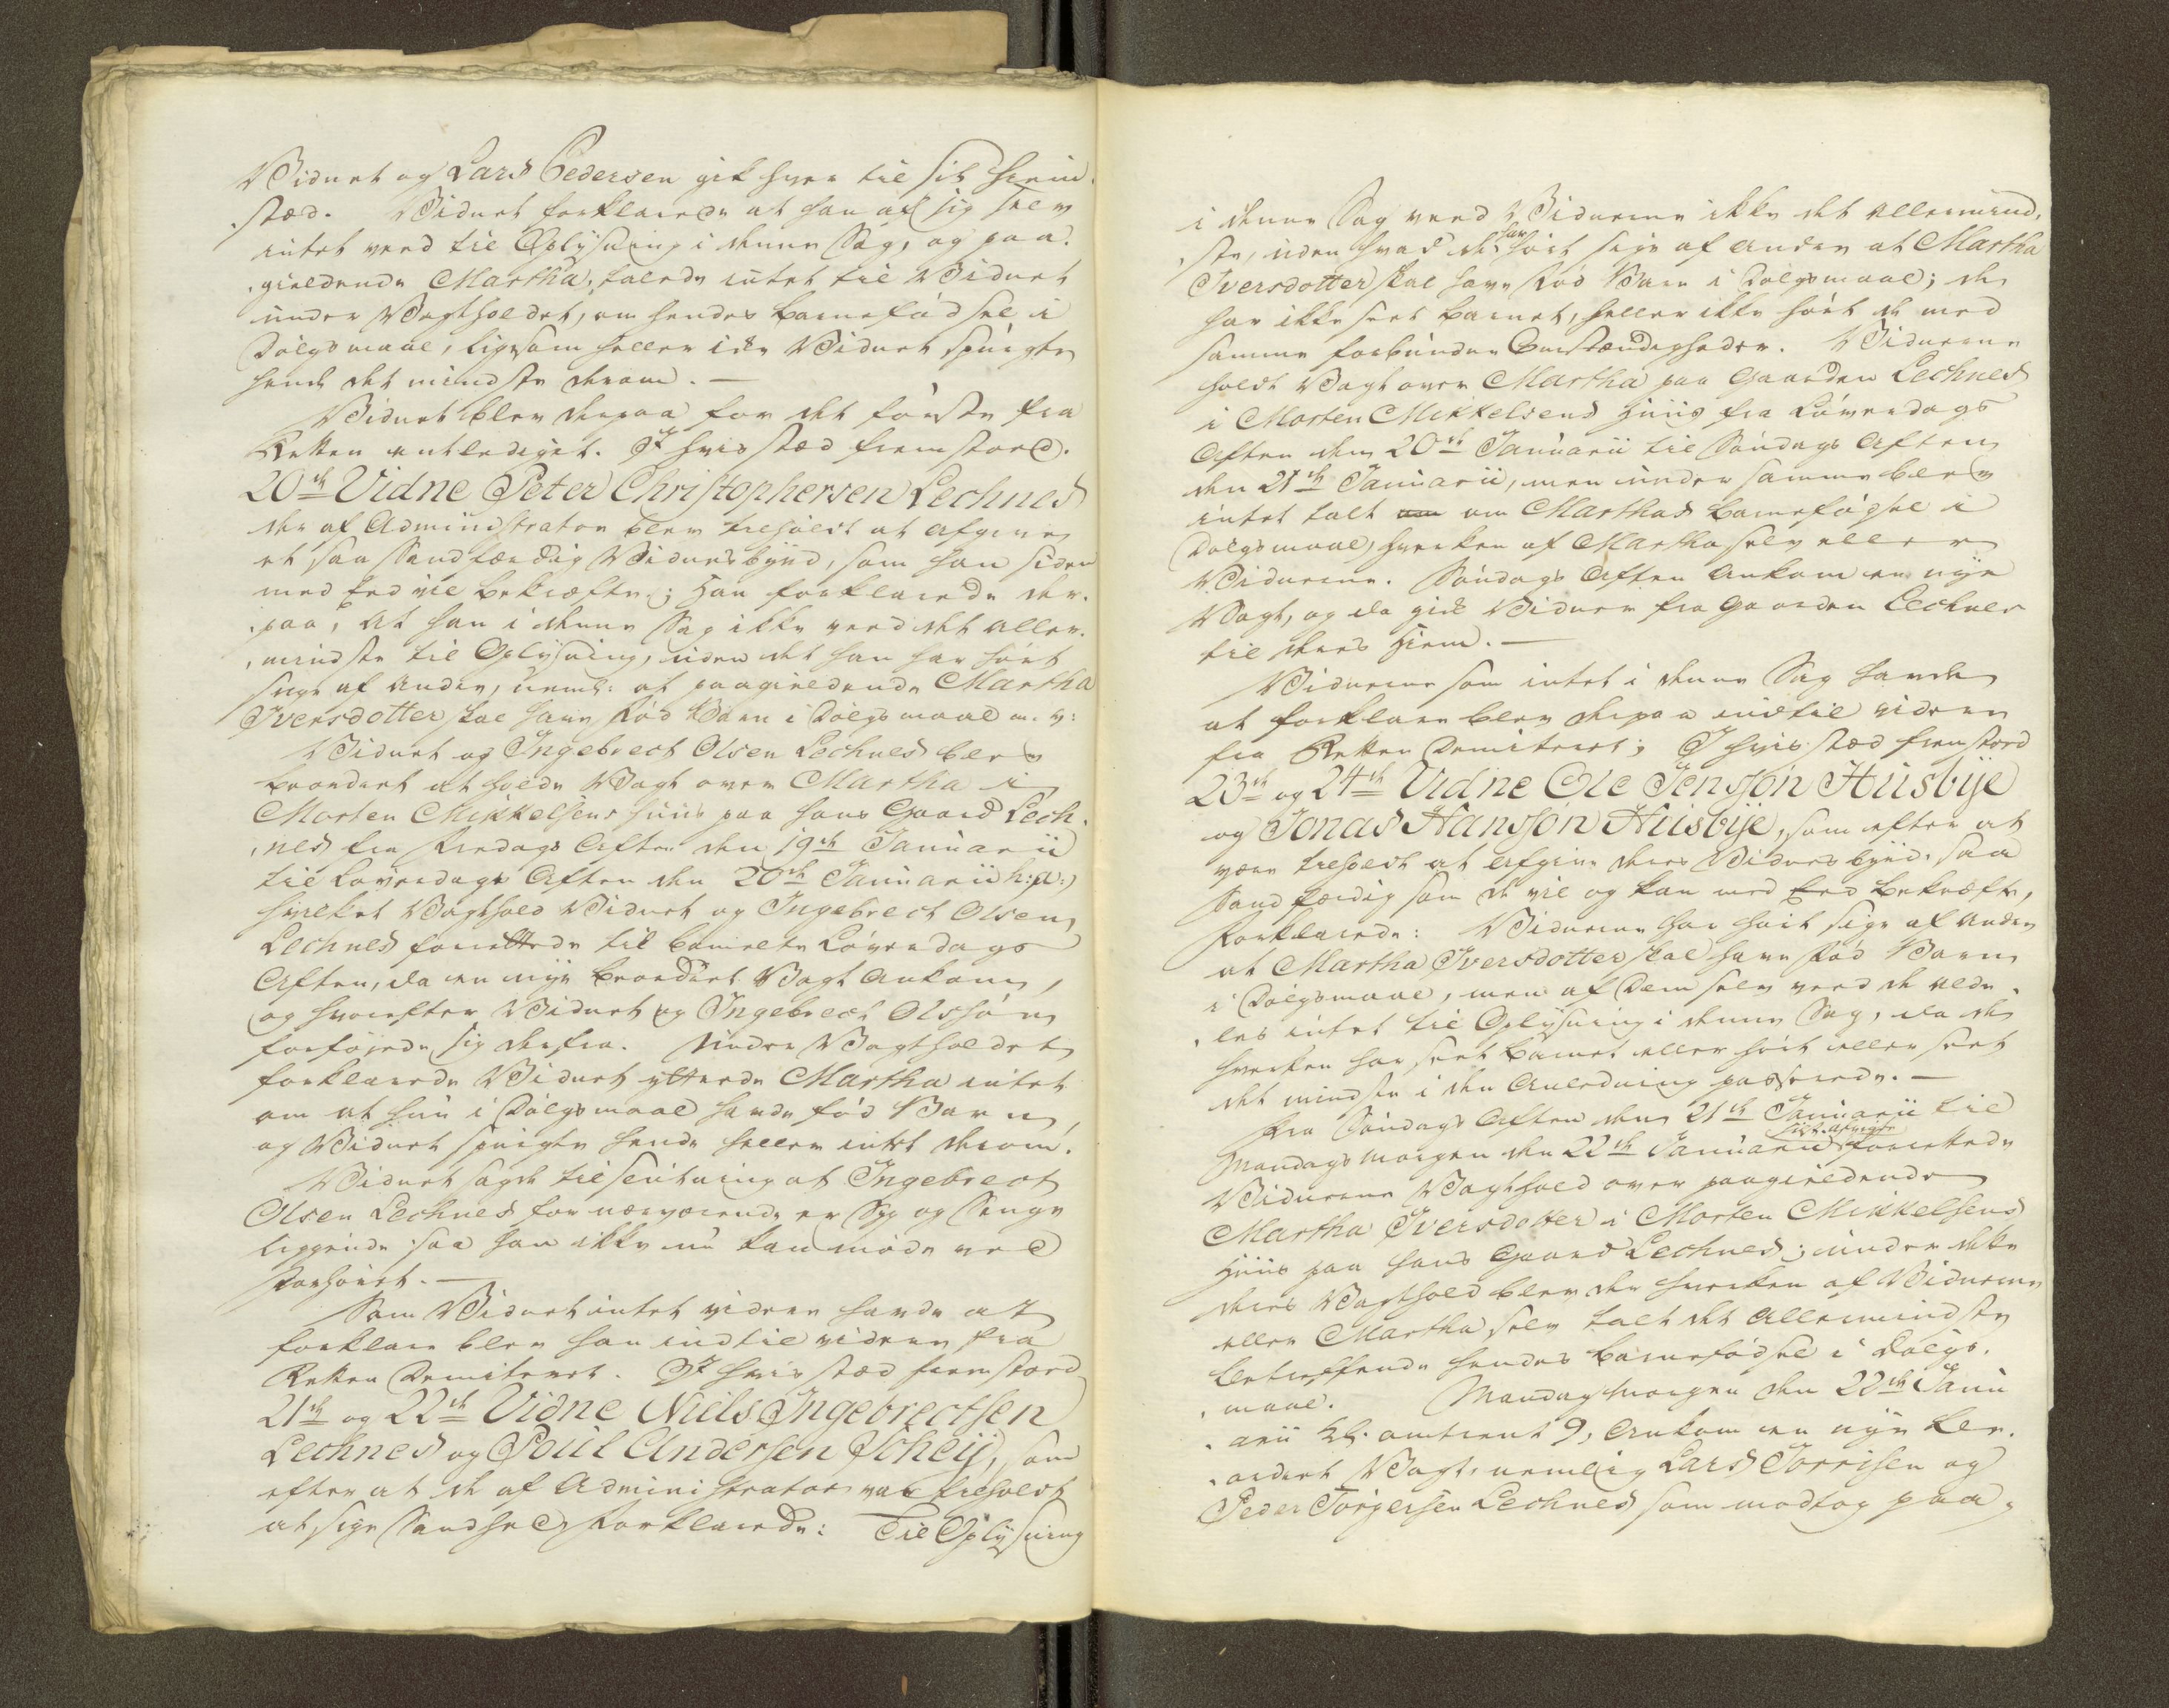 Vidnet og Lars Pedersen gik hver til sit hiem¬
stæd. Vidnet forklarede at han af sig selv
intet veed til Oplysning i denne Sag, og paa¬
gieldende Martha, talede intet til Vidnet
under Vagtholdet, om hendes barnefödsel i
Dølgsmaal, ligesom heller ikke Vidnet spurgte
hende det mindste derom. —
Vidnet blev derpaa for det förste fra
Retten entlediget. I hvis stæd fremstoed.
20de Vidne Peter Christophersen Lechnes
der af Administrator blev tilholdt at afgive
et saa Sandfærdig Vidnesbyrd, som han siden
med Eed vil bekræfte; Han forklarede der¬
paa, At han i denne Sag ikke veed det aller¬
mindste til Oplysning, uden det han har hört
sige af Andre, neml: at paagieldende Martha
Iversdotter skal have fød Barn i Dølgsmaal m. v:
Vidnet og Ingebrect Olsen Lechnes blev
beordret at holde Vagt over Martha i
Morten Mikkelsens huus paa hans Gaard Lech¬
nes fra Fredags Aften den 19de Januarii
til Løverdags Aften den 20de Januarii h: a:)
hvilket Vagthold Vidnet og Ingebrect Olsen
Lechnes forrettede til bemelte Løverdags
Aften, da en nye beordret Vagt Ankom,
og hvorefter Vidnet og Ingebrect Olssøn
forføjede sig derfra. Under Vagtholdet
forklarede Vidnet ytterde Martha intet
om at hun i Dølgsmaal havde fød Barn,
og Vidnet spurgte hende heller intet derom.
Vidnet sagde tilslutning at Ingebrect
Olsen Lechnes for nærværende er Syg og Senge
liggende saa han ikke nu kan møde ved
Forhøret. —
Som Vidnet intet videre havde at
forklare blev han indtil videre fra
Retten Demitteret. I hvis stæd fremstoed
21de og 22de Vidne Niels Ingebrectsen
Lechnes og Poul Andersen Joheij, som
efter at de af Administrator var tilholdt
at sige Sandhed, forklarede: Til Oplysning
i denne Sag veed Vidnerne ikke det allermind¬
ste, uden hvad de har hört sige af Andre at Martha
Iversdotter skal have fød Barn i Dølgsmaal; de
har ikke seet barnet, heller ikke hört de med
samme forbundne Omstændigheder. Vidnerne
holdt Vagt over Martha paa Gaarden Lechnes
i Morten Mikkelsens Huus fra Løverdags
Aften den 20de Januarii til Søndags Aften
den 21de Januarii, men under samme blev
intet talt om Marthas barnefødsel i
Dølgsmaal, hverken af Martha selv eller
Vidnerne. Søndags Aften Ankom en nye
Vagt, og da gik Vidnerne fra Gaarden Lechnes
til deres Hiem. —
Vidnerne som intet i denne Sag havde
at forklare blev derpaa indtil videre
fra Retten Demitteret; I hvis stæd fremstoed
23de og 24de Vidne Ole Jenssøn Huusbije
og Jonas Hanssøn Huusbije, som efter at
være tilholdt at afgive deres Vidnesbyrd saa
Sandfærdig som de vil og kan med Eed bekræfte,
forklarede: Vidnerne har hört sige af Andre
at Martha Iversdotter skal have fød Barn
i Dølgsmaal, men af Dem selv veed de alde¬
les intet til Oplysning i denne Sag, da de
hverken har seet barnet eller hört eller seet
det mindste i den Anledning passerede. —
Fra Søndags Aften den 21de Januarii til
Mandags Morgen den 22de Januarii forrettede
Vidnerne Vagthold over paagieldende
Martha Iversdotter i Morten Mikkelsens
Huus paa hans Gaard Lechnes; under dette
deres Vagthold blev der hverken af Vidnerne
eller Martha selv talt det Allermindste
betreffende hendes barnefødsel i Dølgs¬
maal. Mandag Morgen den 22de Janu
arii Kl. omtrent 9, Ankom en nye be¬
ordret Vagt, nemlig Lars Torrisen og
Peder Törgersen Lechnes som modtog paa¬